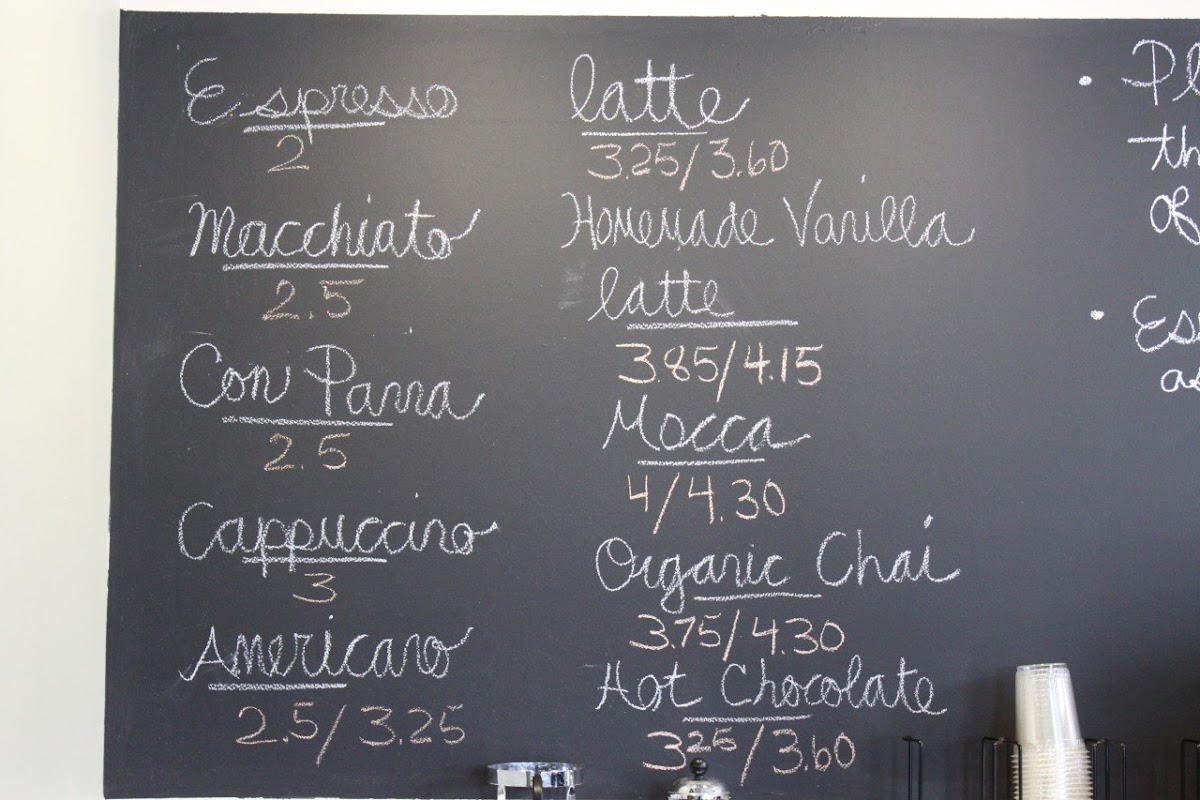 Espresso
2
Macchiato
2.5
Con Panna
2.5
Cappuccino
3
Americano
2.5/3.25
latte
3.25/3.60
Homemade Vanilla
latte
3.85/4.15
Mocca
4/4.30
Organic Chai
3.75/4.30
Hot Chocolate
3.25/3.60
of